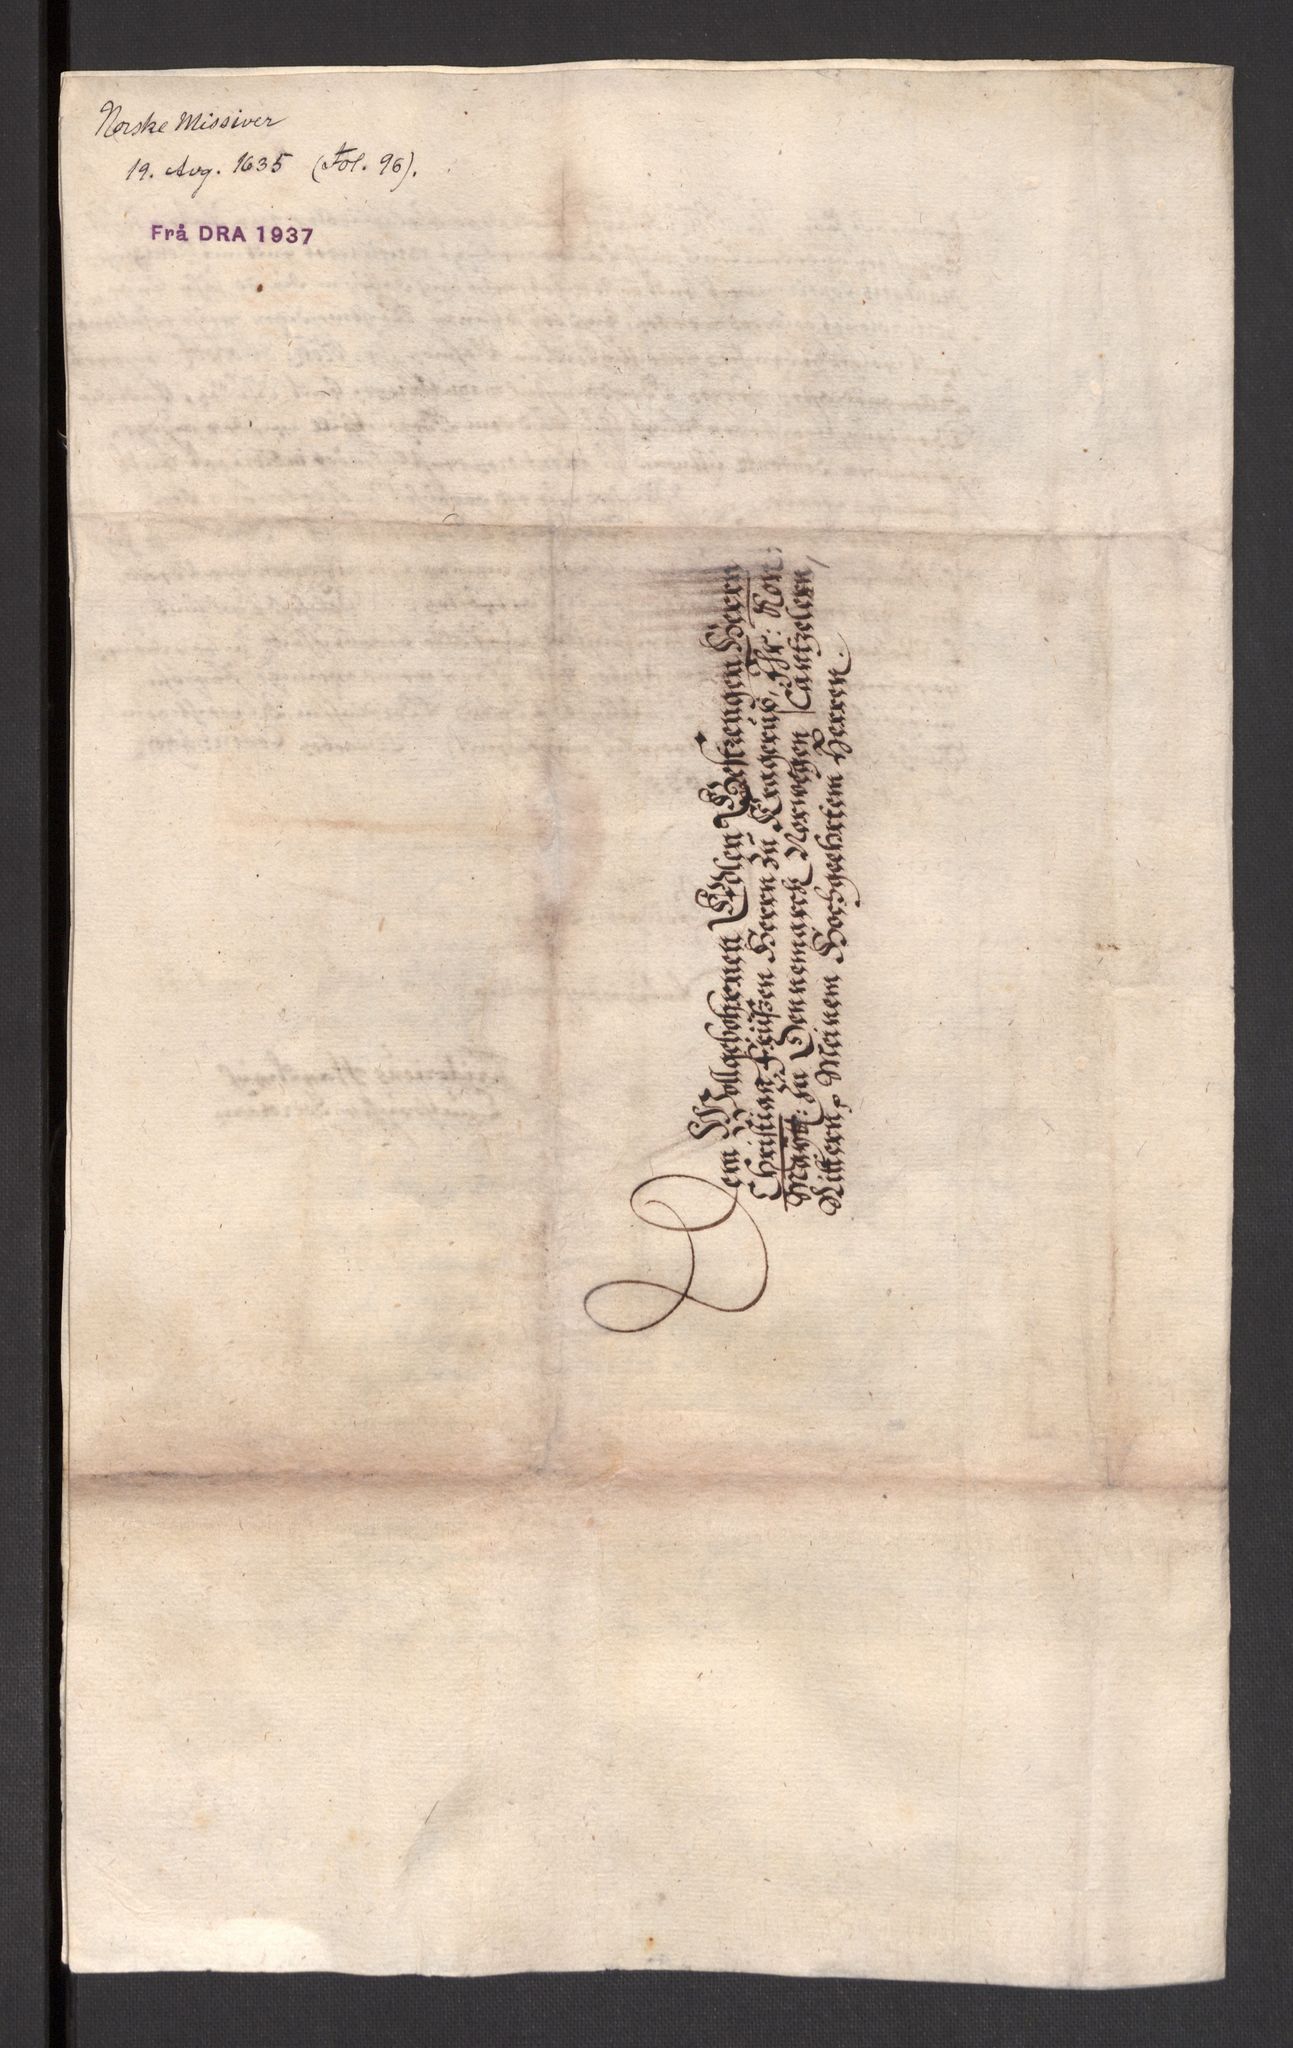 Norske Missiver
19. Aug. 1635 (Fol. 96).
Frå DRA 1937
Dem Wollgebohrnen Edlen Gestrengen Herrn
Christian Früßen Herrn zu Kragerup, Ihr: Kön:
Maytt: zu Dennemarck Norwegen Cantzelern,
Rittern, Meinem Hochgeehrtem Herren.